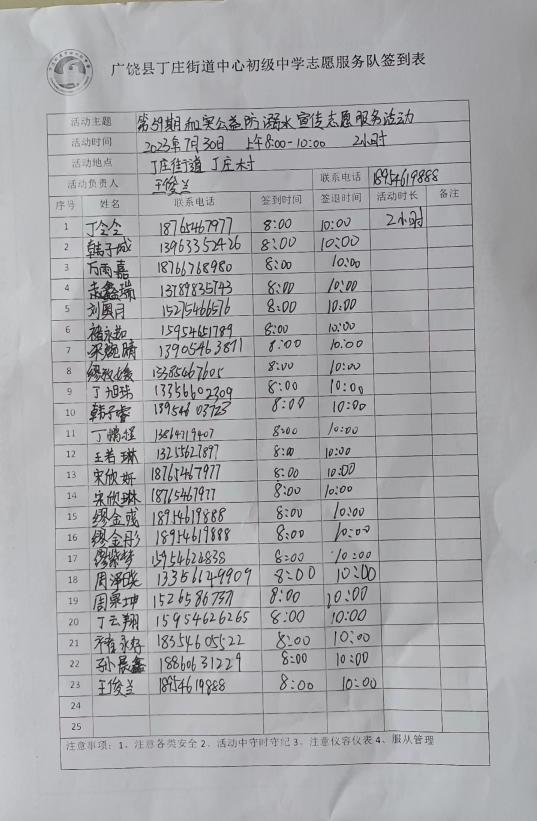 广饶县丁庄街道中心初级中学志愿服务队签到表
活动主题 第59期和实公益防溺水宣传志愿服务活动
活动时间 2023年7月30日 上午8:00-10:00 2小时
活动地点 丁庄街道丁庄村
活动负责人 王俊兰 联系电话 18954619888
序号 姓名 联系电话 签到时间 签退时间 活动时长 备注
1 丁全全 18765467977 8:00 10:00 2小时
2 韩子城 13963352426 8:00 10:00
3 万雨嘉 18766768980 8:00 10:00
4 鑫瑞 13789835743 8:00 10:00
5 刘奥月 15275466576 8:00 10:00
6 褚永茹 15954651789 8:00 10:00
7 宋婉晴 13905463811 8:00 10:00
8 缪 15385467605 8:00 10:00
9 丁旭珠 13356602309 8:00 10:00
10 韩子睿 18954603723 8:00 10:00
11 丁情程 13864719407 8:00 10:00
12 王若琳 13255627897 8:00 10:00
13 宋欣妍 18765467977 8:00 10:00
14 宋欣琳 18765467977 8:00 10:00
15 缪金彧 18954619888 8:00 10:00
16 缪金彤 18954619888 8:00 10:00
17 缪紫梦 15954624838 8:00 10:00
18 周泽晓 13356129909 8:00 10:00
19 周泉坤 8:00 10:00
20 丁云翔 15954626265 8:00 10:00
21 永存 18354605522 8:00 10:00
22 孙晨鑫 18860631229 8:00 10:00
23 王俊兰 18954619888 8:00 10:00
24
25
注意事项:1、注意各类安全 2、活动中守时守纪 3、注意仪容仪表 4、服从管理